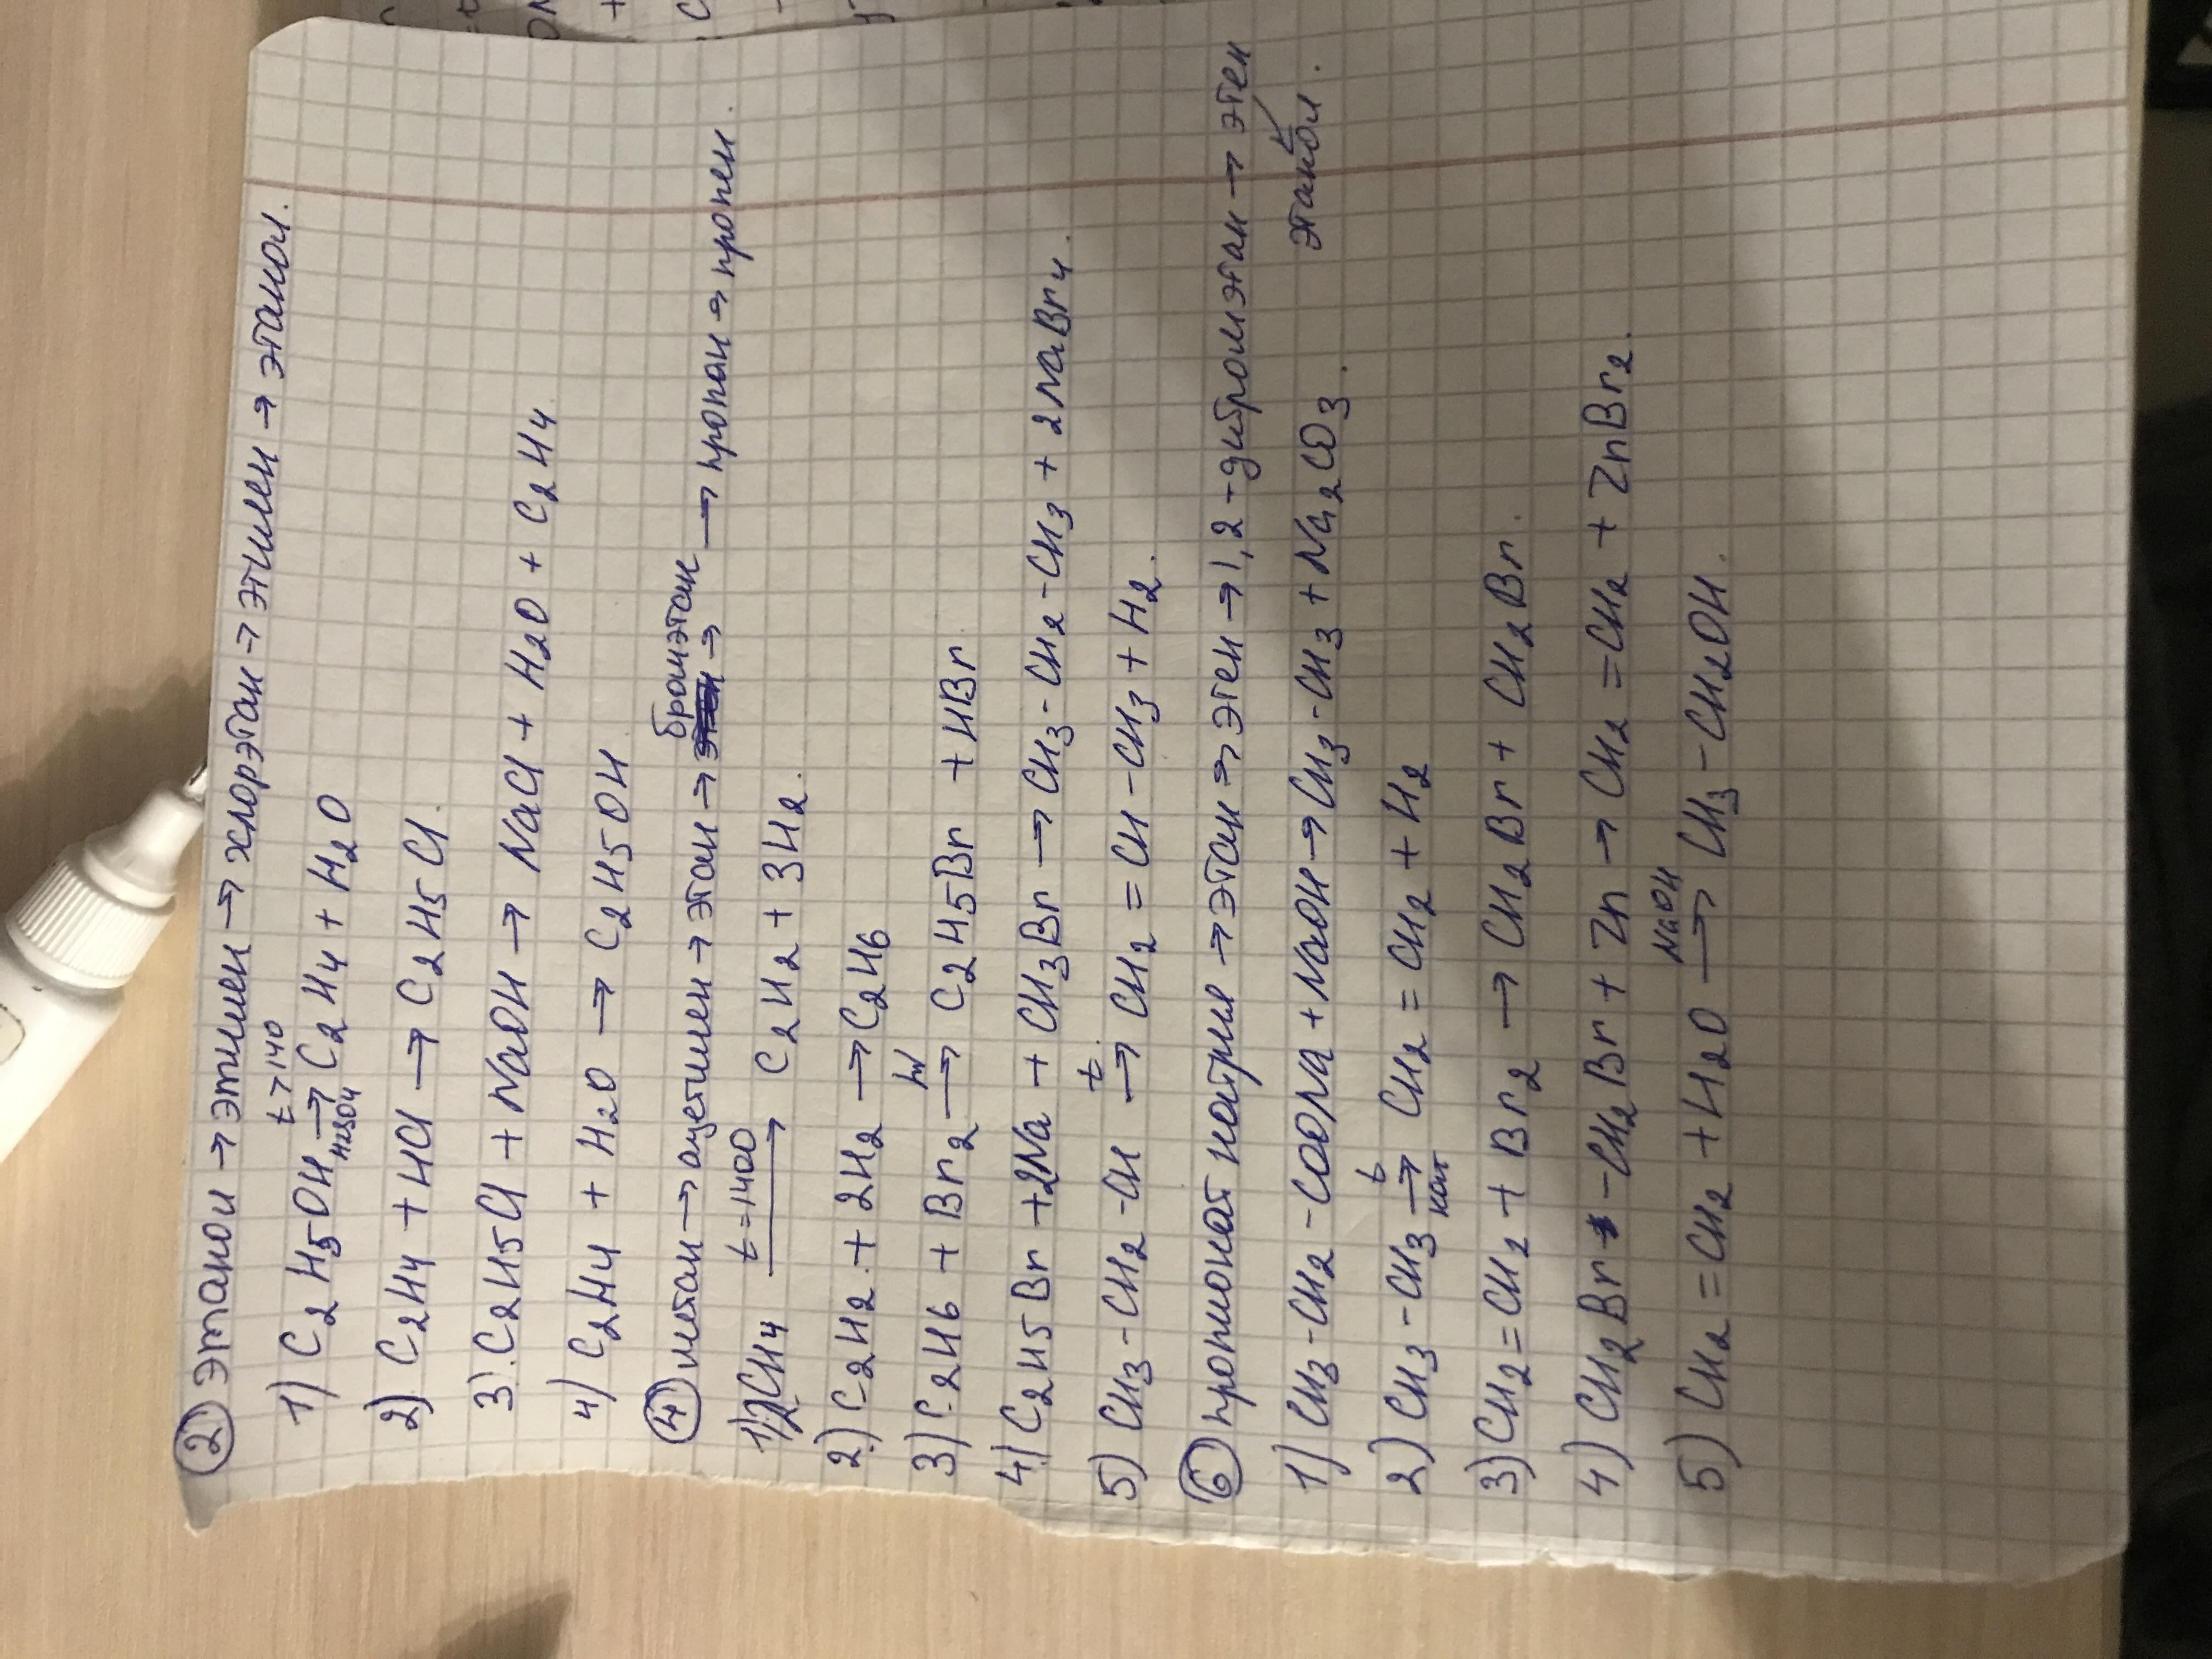 ② Этанол → этилен → хлорэтан → этилен → этанол.
t > 140
1) C2H5OH → C2H4 + H2O
H2SO4
2) C2H4 + HCl → C2H5Cl.
3) C2H5Cl + NaOH → NaCl + H2O + C2H4
4) C2H4 + H2O → C2H5OH
бромэтан
④ метан → ацетилен → этан → → пропан → пропен.
t = 1400
1) 2CH4 → C2H2 + 3H2.
2) C2H2 + 2H2 → C2H6
hν
3) C2H6 + Br2 → C2H5Br + HBr
4) C2H5Br + 2Na + CH3Br → CH3-CH2-CH3 + 2NaBr4
t
5) CH3-CH2-CH → CH2=CH-CH3 + H2.
⑥ пропионат натрия → этан → этен → 1,2-дибромэтан → этен
этанол.
1) CH3-CH2-COONa + NaOH → CH3-CH3 + Na2CO3.
t
2) CH3-CH3 → CH2=CH2 + H2
кат
3) CH2=CH2 + Br2 → CH2Br + CH2Br.
4) CH2Br-CH2Br + Zn → CH2=CH2 + ZnBr2.
NaOH
5) CH2=CH2 + H2O → CH3-CH2OH.